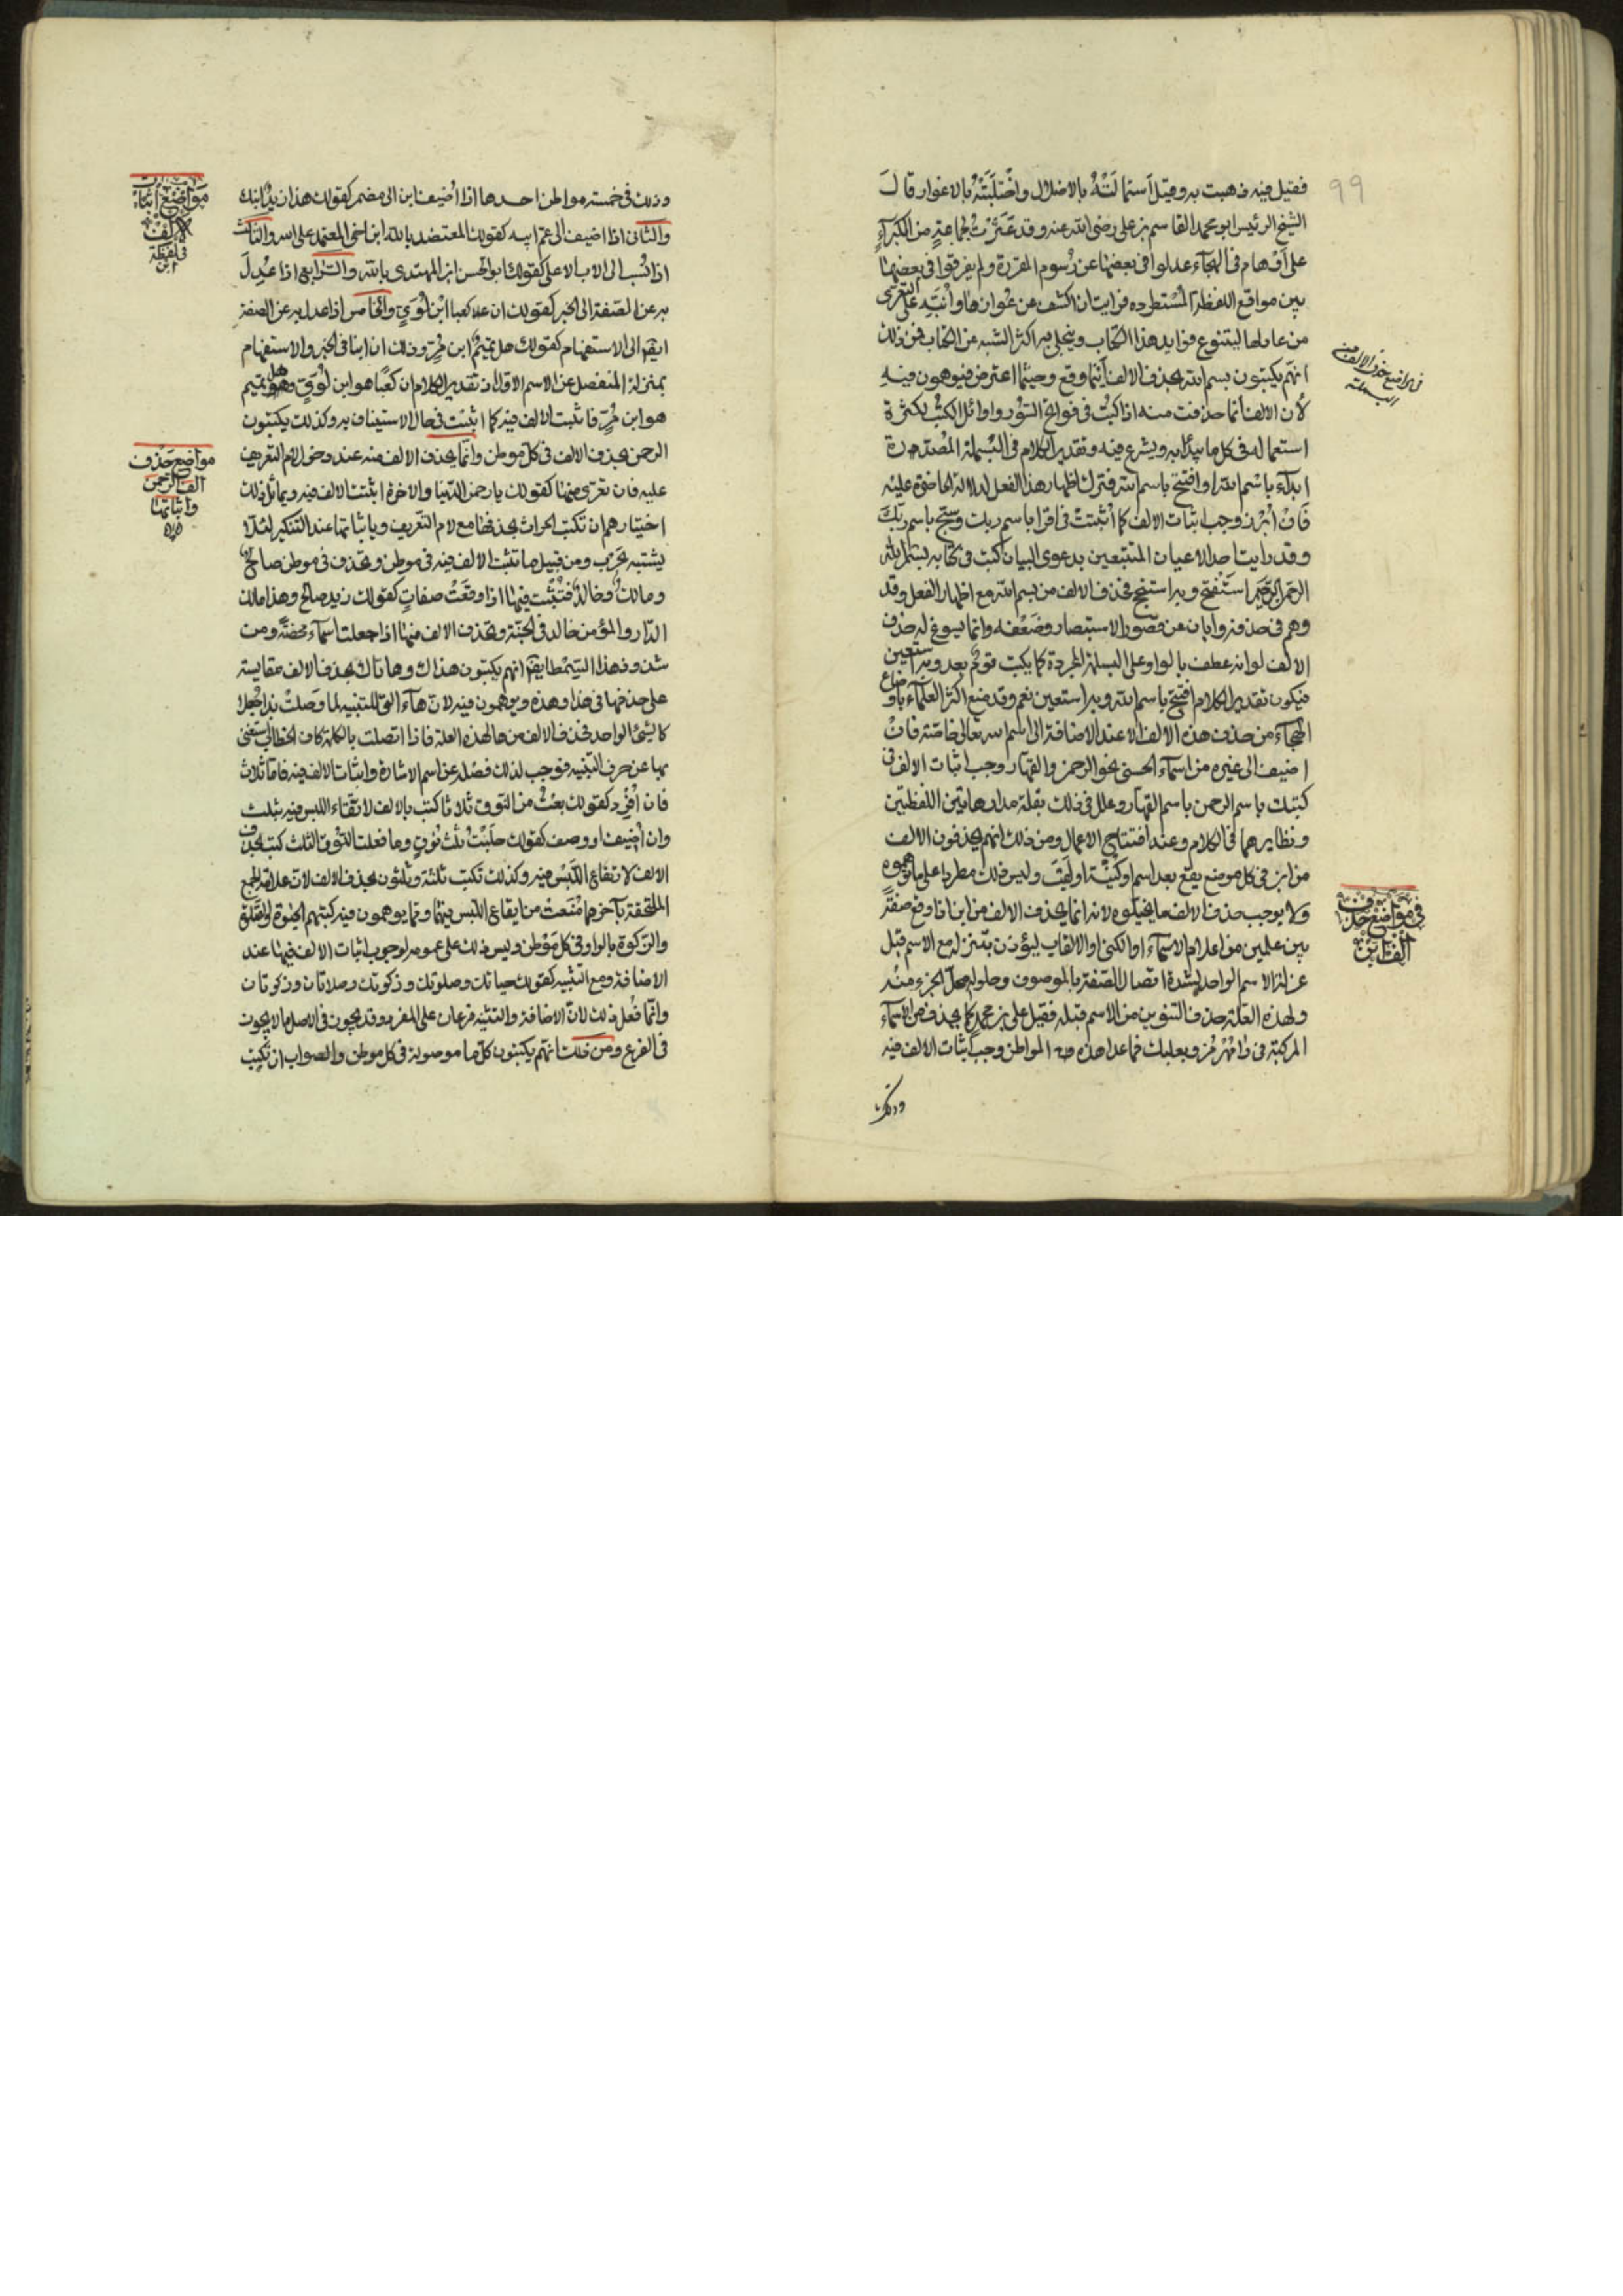 ٩٩
فقيل فيه ذهبت به وقيل استمالتْهُ بالاضلال واختلَبَتْهُ بالاغوار قال
الشيخ الرئيس ابو محمد القاسم بن علي رضي الله عنه وقد عَثَرْتُ لجماعةٍ من الكبرآءِ
على اَوْهام في الهجآء عدلوا في بعضها عن رُسوم المقررة ولم يفرقوا في بعضها
بين مواقع اللفظة المُسْتطرده فرايت ان اكشف عن عُوارها واُنبّهِ على التعرّي
من عارها ليتنوع فوايد هذا الكتاب وينجلي به اكثر الشبه عن الكتاب فمن ذلك
انهم يكتبون بسم الله بحذف الالف اَيْنما وقع وحيثما اعترض فيوهمون فيه
لأن الالف انما حذفت منه اذا كُتِبْ في فواتح السُّوَر واوائل الكتُب لكثرة
استعماله في كل ما يبدأ به ويشرع فيه وتقدير الكلام في البَسملة المُصَدّرة
ابدآء باسْم الله او افتتح باسم الله فترك اظهار هذا الفعل لدلالة الحاضرة عليه
فانْ اُبْرِزَ وجب اثبات الالف كما اُثبتَتْ في اقرا باسم ربك وسبّح باسم ربّكَ
وقد رايت احد الاعيان المتتبعين بدعوى البيان كتب في كتابه بسم الله
الرحمن الرحيم استَفْتح وبه استنجح فحذف الالف من بسم الله مع اظهار الفعل وقد
وهم في حذفه وابان عن قصور الاستبصار وضَعْفه وانما يسوغ له حذف
الالف لو انه عطف بالواو على البسملة المجردة كما يكتب قومٌ بعد وبه استعين
فيكون تقدير الكلام افتتح باسم الله وبه استعين نعم وقد منع اكثر العلمآء باوضاع
الهجآء من حذف هذه الالف الا عند الاضافة الى اسم الله تعالى خاصّة فانْ
اضيف الى غيره من اسمآء الحسنى نحو الرحمن والقهّار وجب اثبات الالف في
كتبك باسم الرحمن باسم القهّار وعلل في ذلك بقلّة مدار هاتين اللفظتين
ونظايرهما في الكلام وعند افتتاح الاعمال ومن ذلك انهم يحذفون الالف
من ابن في كل موضع يقع بعد اسم او كُنْيَّة او لَقبَ وليس ذلك مطردا على ما توهموه
ولا يوجب حذف الالف ما يخيّلوه لانه انما يحذف الالف من ابن اذا وقع صفةً
بين علمين من اعلام الاسمآء او الكنى او الالقاب ليؤذن بتنزله مع الاسم قبل
منزلة الاسم الواحد لشدة اتصال الصّفة بالموصوف وحلوله محلّ الجزء منْه
ولهذه العلّة حذف التنوين من الاسم قبله فقيل علي بن محمد كما يحذف من الاسمآء
المركبة في رامَهُرْمُز وبعلبك فما عدا هذه المواطن وجب اثبات الالف فيه
وذلك
في مواضع حذف الالف من
البسملة
في مَواضِع حَذْف
اَلِف ابْن
وذلك في خمسة مواطن احدها اذا اُضيف ابن الى مضمر كقولك هذا زيدٌ ابنك
والثاني اذا اضيف الى غير ابيه كقولك المعتضد بالله ابن اخي المعتمد على الله والثالث
اذا نُسِب الى الاب الاعلى كقولك ابو الحسن ابن المهتدي بالله والرّابع اذا عُدِلَ
به عن الصّفة الى الخبر كقولك ان كعبا ابْن لُؤيّ والخامس اذا عدل به عن الصفة
ايضا الى الاستفهام كقولك هل تميمٌ ابن مُرّ وذلك ان ابنا في الخبر والاستفهام
بمنزلة المنفصل عن الاسم الاول اذ تقدير الكلام ان كعْبًا هو ابن لُؤيّ وهل تميم
هو ابن مُرّ فاثبت الالف فيه كما اثبتت في حال الاستيناف به وكذلك يكتبون
الرحمن بحذف الالف في كلّ موطن وانّما يحذف الالف منه عند دخول لام التعريف
عليه فان تعرّى منها كقولك يا رحمن الدّنيا والاخرة اثبتت الالف فيه ويماثل ذلك
اختيارهم ان تكتب الحراث بحذفها مع لام التّعريف وباثباتها عند التنكير لئلّا
يشتبه بحَرْب ومن قبيل ما تثبت الالف فيه في موطن وتحذف في موطن صالحٌ
ومالكٌ وخالدٌ فتثبْت فيها اذا وقعَتْ صفاتٍ كقولك زيد صالح وهذا مالك
الدّار والمؤمن خالد في الجنّة وتحذف الالف منها اذا جعلت اسمآء محضةً ومن
شذوذ هذا السّمط ايضا انهم يكتبون هذاك وهاتاك بحذف الالف مقايسة
على حذفها في هذا وهذه ويوهمون فيه لان هآء التي للتنبيه لما وصلتْ بذا جُعلا
كالشيْ الواحد فحذف الالف من ها لهذه العلة فاذا اتصلت بالكلمة كاف الخطاب استغنى
بها عن حرف التنبيه فوجب لذلك فصْله عن اسم الاشارة واثبات الالف فيه فامّا ثلاث
فان اُفْرِد كقولك بعثْ من النّوق ثلاثا كتب بالالف لاتقآء اللبس فيه بثلث
وان اُضِيف او وصف كقولك حلَبْتُ ثلث نُوقٍ وما فعلت النُّوق الثلث كتب بحذف
الالف لارتفاع اللَبْس فيه وكذلك تكتب ثلثة وثلثون بحذف الالف لان علامة الجمع
الملتحقة بآخرهما مُنَعتْ من ايقاع اللبس فيهما ومما يوهمون فيه كتبهم الحيٰوة والصَّلٰوة
والزّكوة بالواو في كل مَوْطن وليس ذلك على عمومه لوجوب اثبات الالف فيها عند
الاضافة ومع التثنيه كقولك حياتك وصلوتك وزكوتك وصلاتان وزكوتان
وانّما فُعل ذلك لانّ الاضافة والتثنية فرعان على المفرد وقد يجوز في الاصل ما لا يجوز
في الفرع ومن ذلك انّهم يكتبون كلّ ما موصولة في كل موطن والصواب ان تكتب
مَوَاضِع اِثباتِ
الالِف
في لفظة
ابن
مواضِع حَذف
الف الرّحمٰن
واثباتها